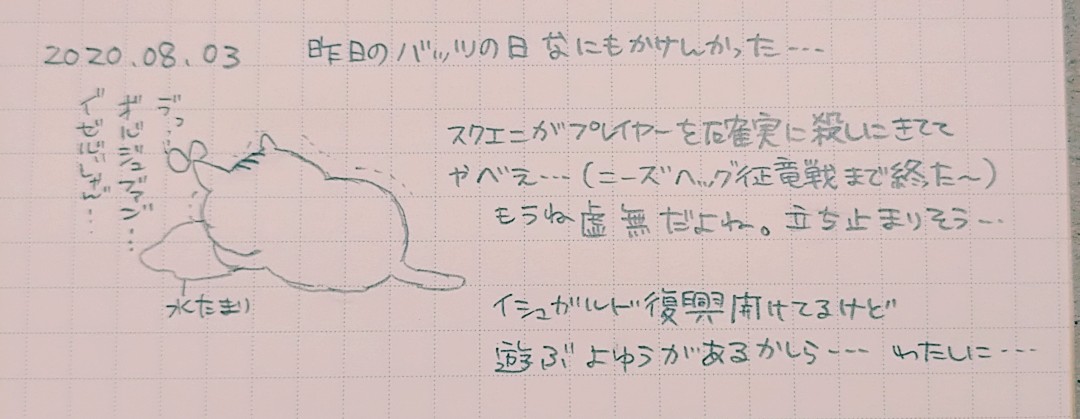 2020.08.03 昨日のバッツの日 なにもかけんかった…
スクエニがプレイヤーを確実に殺しにきてて
やべえ…(ニーズヘッグ征竜戦まで終た～)
もうね虚無だよね。立ち止まりそう…
イシュガルド復興開けてるけど
遊ぶよゆうがあるかしら… わたしに…
デっ…
オルジュブァン…
イゼルしゃん…
水たまり